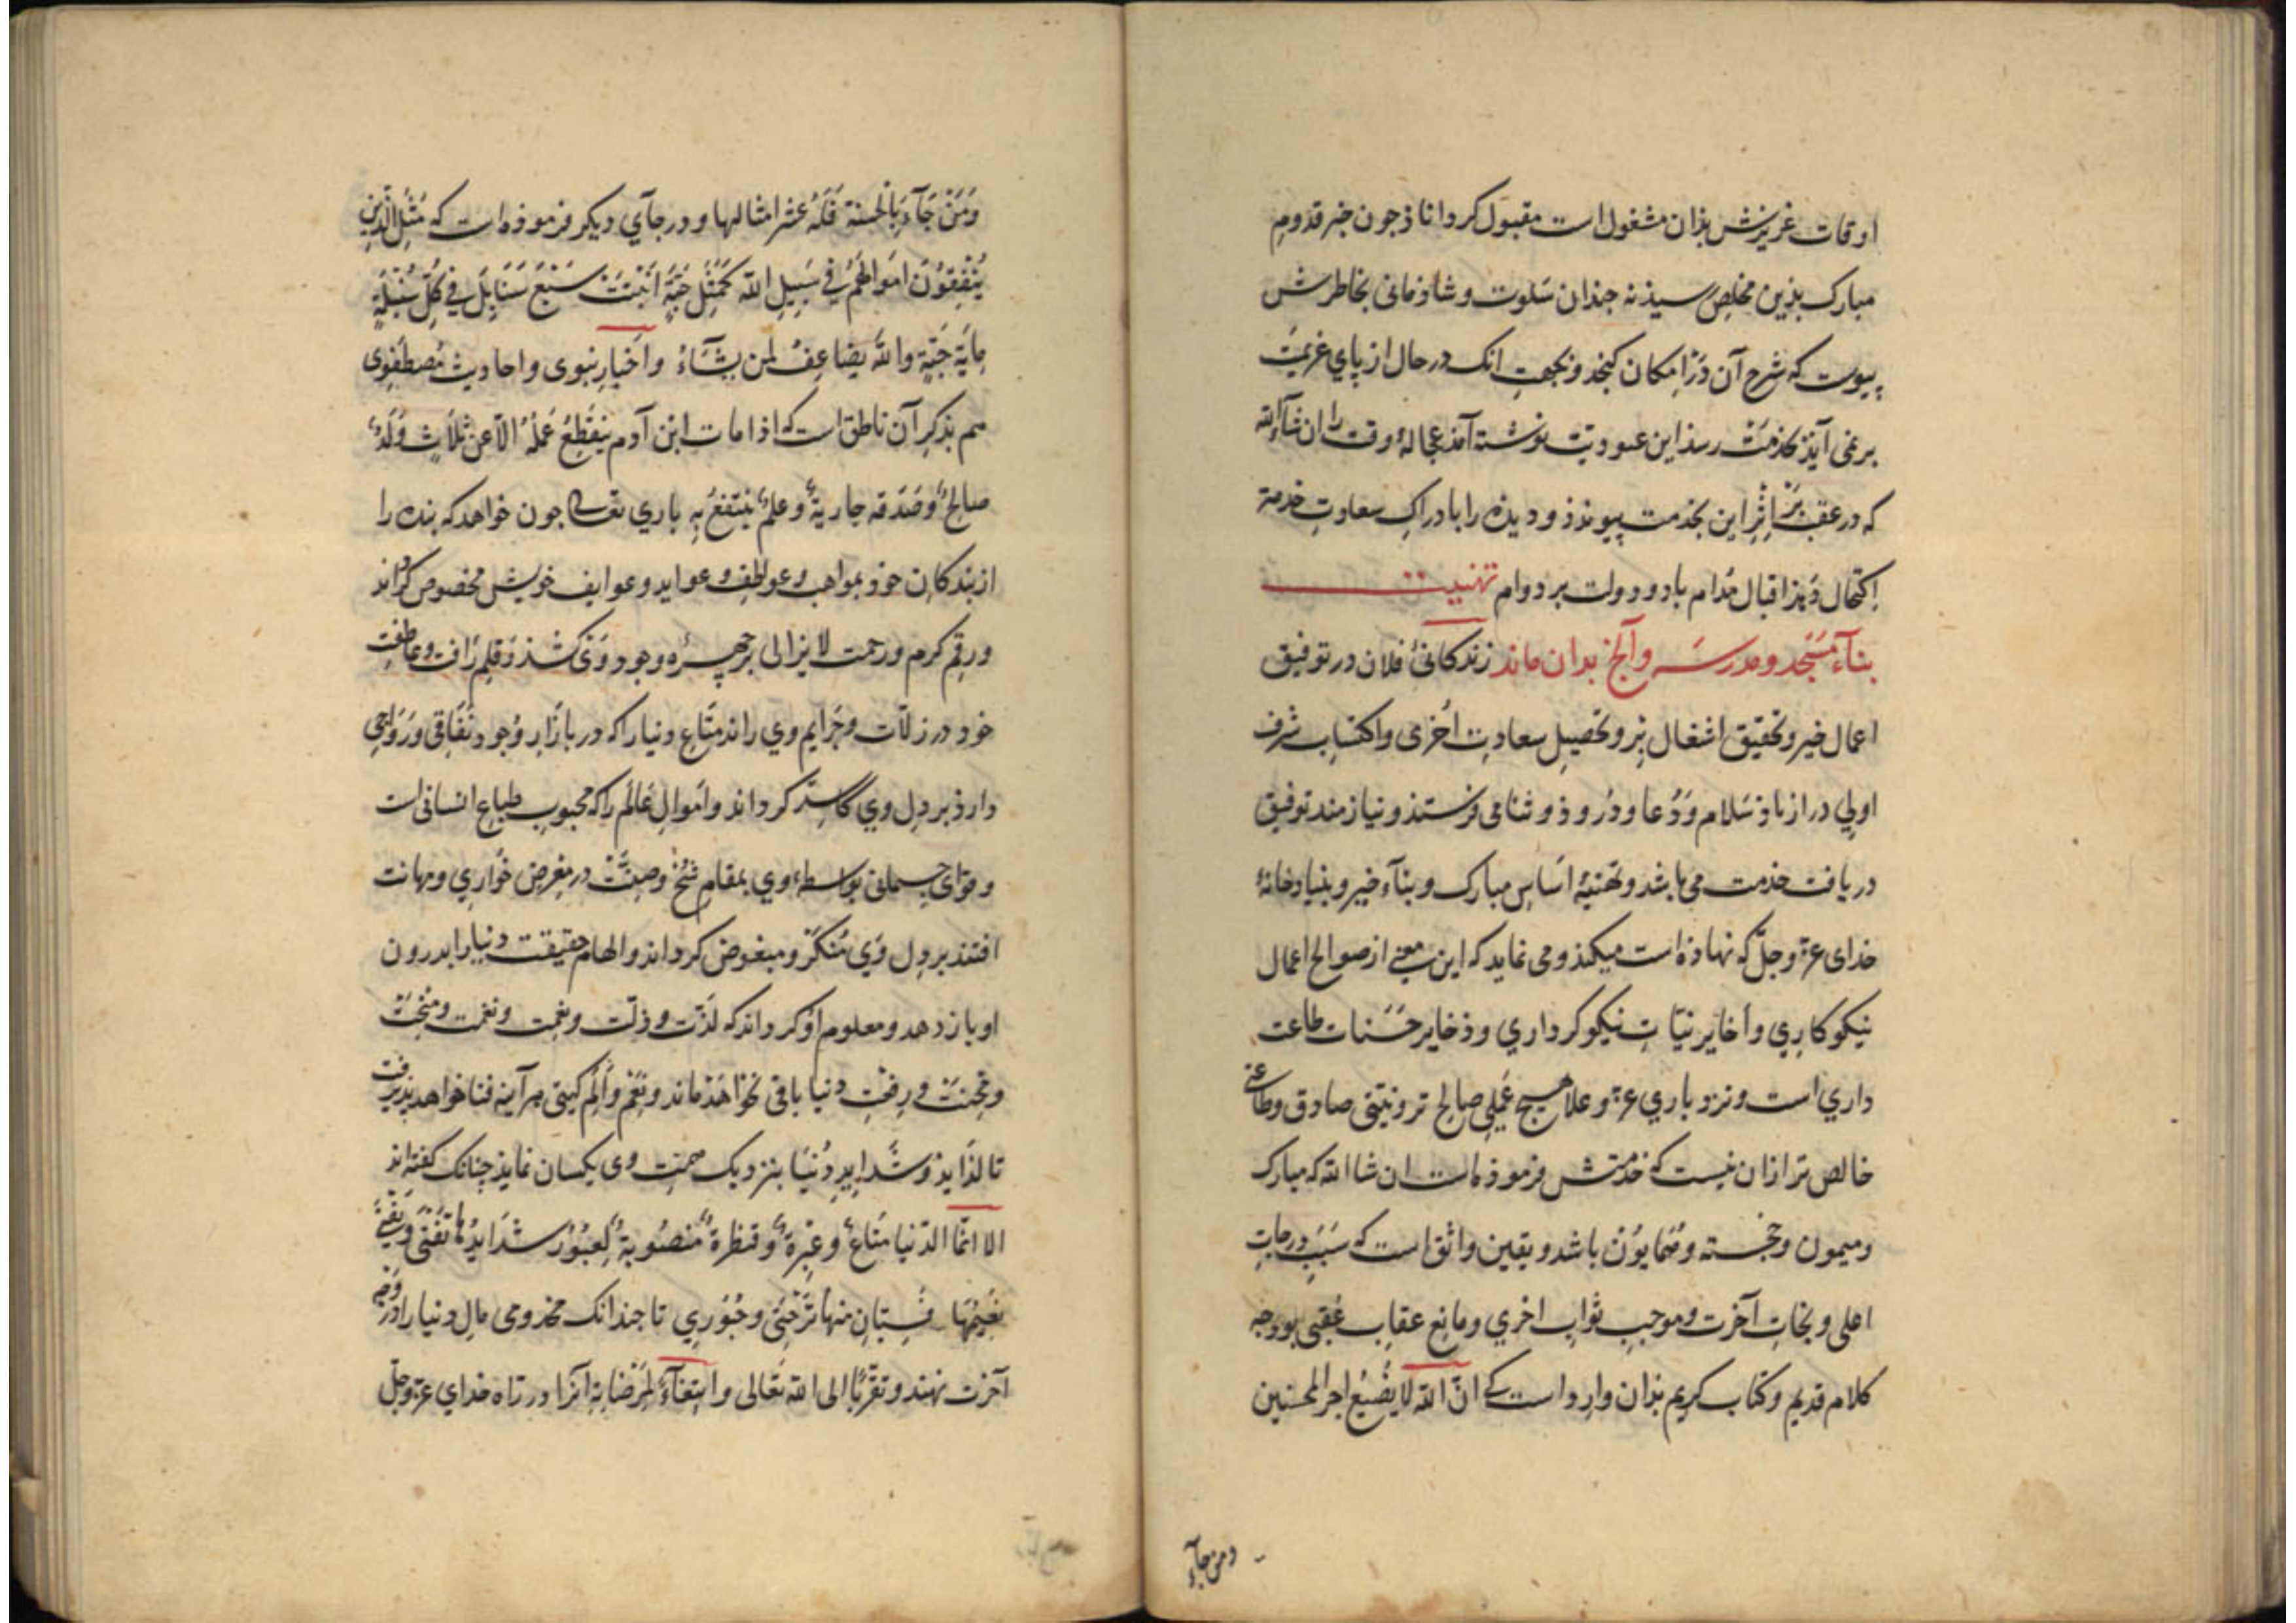 اوقات عزیزش بذان مشغول است مقبول کرداناذ جون خبر قدوم
مبارک بذین مخلص رسیذ نه جندان سلوت و شاذمانی بخاطرش
پیوست که شرح آن در امکان کنجذ و بجهت انک در حال از پای عزیمت
بر نمی آیذ بخدمت رسذ این عبودیت نوشته آمذ عجالهٔ وقت را ان شآء الله
که در عقب بر اثر این بخدمت پیوندذ و دیذه را بادراک سعادت خدمة
اکتحال دهذ اقبال مدام باد و دولت بر دوام تهنیت
بنآء مسجد و مدرسه و آنج بدان ماند زندکانئ فلان در توفیق
اعمال خیر و تحقیق اشغال بر و تحصیل سعادت اخری و اکتساب شرف
اولی دراز باذ سلام و دعا و دروذ و ثنا می فرستذ و نیازمند توفیق
دریافت خدمت می باشد و تهنیهٔ اساس مبارک و بنآء خیر و بنیاد خانهٔ
خدای عزّ و جلّ که نهاذه است میکنذ و می نماید که این معنی از صوالح اعمال
نیکوکاری و أخایر نیّات نیکوکرداری و ذخایر حسنات طاعت
داری است و نزد باری عزّ و علا هیچ عملی صالح تر و نیتی صادق و طاعتی
خالص تر ازان نیست که خدمتش فرموذه است ان شا الله که مبارک
و میمون و خجسته و همایون باشد و یقین واثق است که سبب درجات
اعلی و نجات آخرت و موجب ثواب اخری و مانع عقاب عقبی بوذ جه
کلام قدیم و کتاب کریم بذان وارد است که انّ الله لا یضیع اجر المحسنین
ومن جآء
وَمَنْ جَآءَ بالحسنة فَلَهُ عشر امثالها و در جآی دیکر فرموذه است که مَثَلُ الّذین
یُنْفِقُونَ اَمْوالَهُمْ فی سَبِیلِ الله کَمَثَلِ حَبَّةٍ اَنْبَتَتْ سَبْعَ سَنَابِلَ فی کُلِّ سُنْبُلَةٍ
مِایَةَ حَبَّةٍ والله یضاعِفُ لمن یشَآءُ و اخبار نبوی و احادیث مصطفوی
هم بذکر آن ناطق است که اذا مات ابن آدم ینقطع عَمَلُهُ الّا عن ثلاثٍ وَلَدٌ
صالحٌ و صَدَقه جاریةٌ و علمٌ ینتفعُ بِهِ باری تعالی جون خواهد که بنده را
از بندکان خوذ بمواهب و عواطف و عواید و عوارف خویش مخصوص کرداند
و رقم کرم و رحمت لایزالی بر جهرهٔ وجود وی کشذ و قلم رافت و عاطفت
خود در زلّات و جرایم وی راند متاع دنیا را که در بازار وجود نفاقی و رواجی
دارذ بر دل وی کاسد کرداند و اموال عالم را که محبوب طباع انسانی است
و قوای جسمانی بواسطهٔ وی بمقام شحّ و ضنّت در معرض خواری و مهانت
افتند بر دل وی منکر و مبغوض کرداند و الهام حقیقت دنیا را بدرون
او باز دهد و معلوم او کرداند که لذّت و ذلّت و نعمت و نقمت و منحت
و محنت و رفعت دنیا باقی نخواهذ ماند و نعم و الم کیتی هر آینه فنا خواهد پذیرفت
تا لذایذ و شداید دنیا بنزدیک همت وی یکسان نمایذ چنانک کفته اند
الا انّما الدّنیا متاعٌ و عبرةٌ و قنطرةٌ منصوبةٌ لعبور شدایدُها تفنی ویفنی
نعیمُها فسیّان منها ترحتی و حبوری تا جندانک مخدومی مال دنیا را در وجه
آخرت نهند و تقرّبًا الی الله تعالی و ابتغآءً لمرضاته آنرا در راه خدای عزّ و جلّ